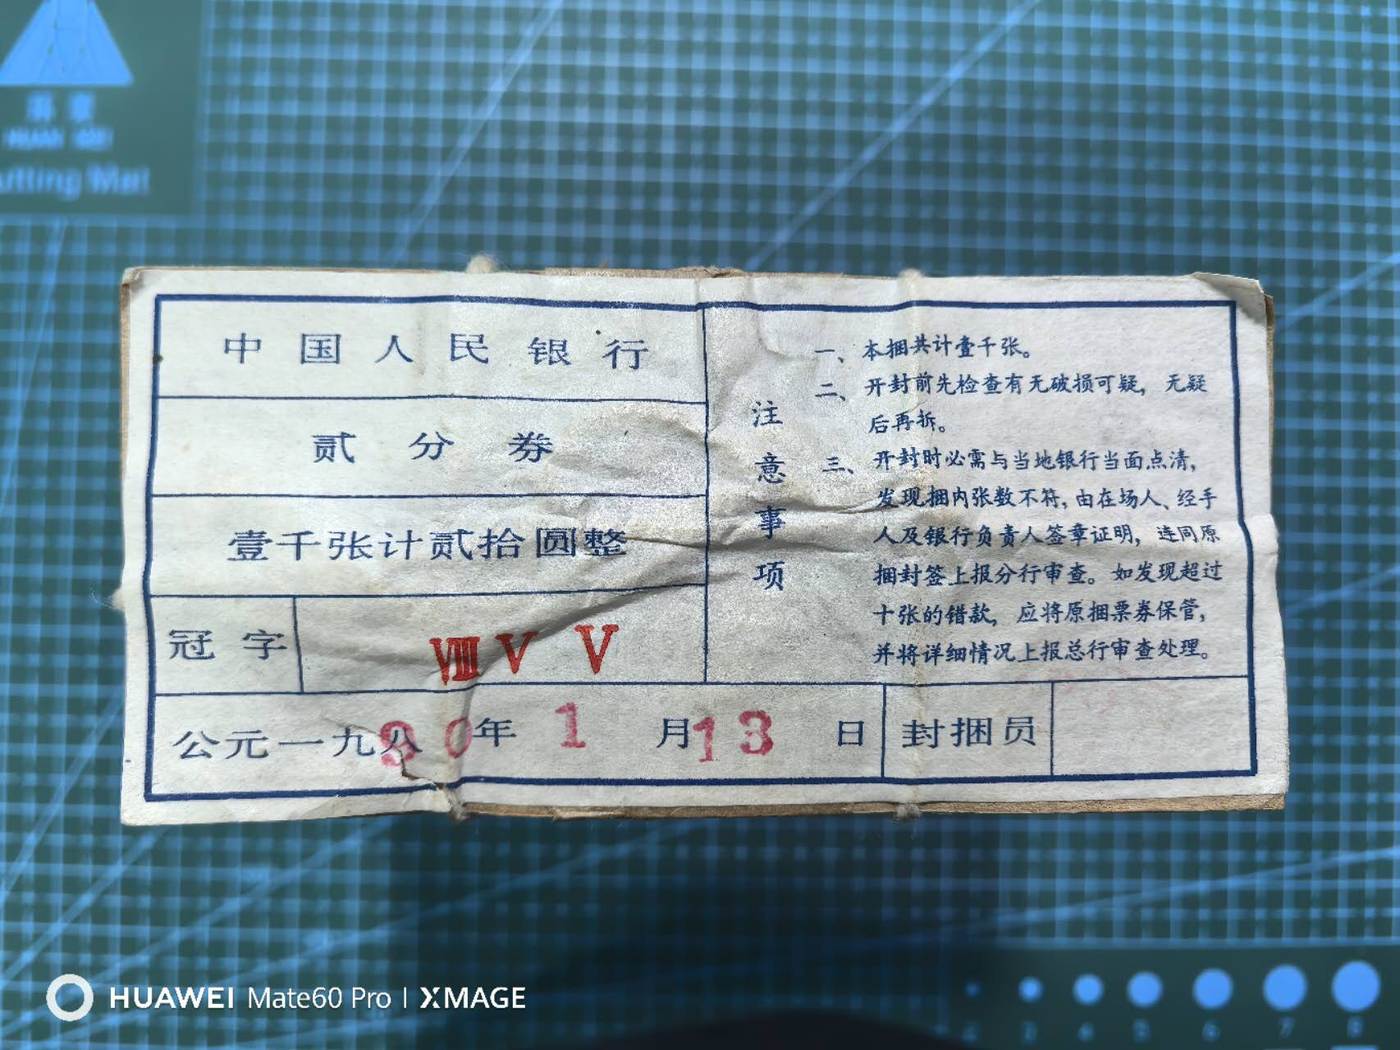 utting Mat
中国人民银行
贰分券
壹千张计贰拾圆整
冠字 ⅧⅤ Ⅴ
公元一九八90年1月13日 封捆员
注意事项
一、本捆共计壹千张。
二、开封前先检查有无破损可疑，无疑
后再拆。
三、开封时必需与当地银行当面点清，
发现捆内张数不符，由在场人、经手
人及银行负责人签章证明，连同原
捆封签上报分行审查。如发现超过
十张的错款，应将原捆票券保管，
并将详细情况上报总行审查处理。
HUAWEI Mate60 Pro | XMAGE